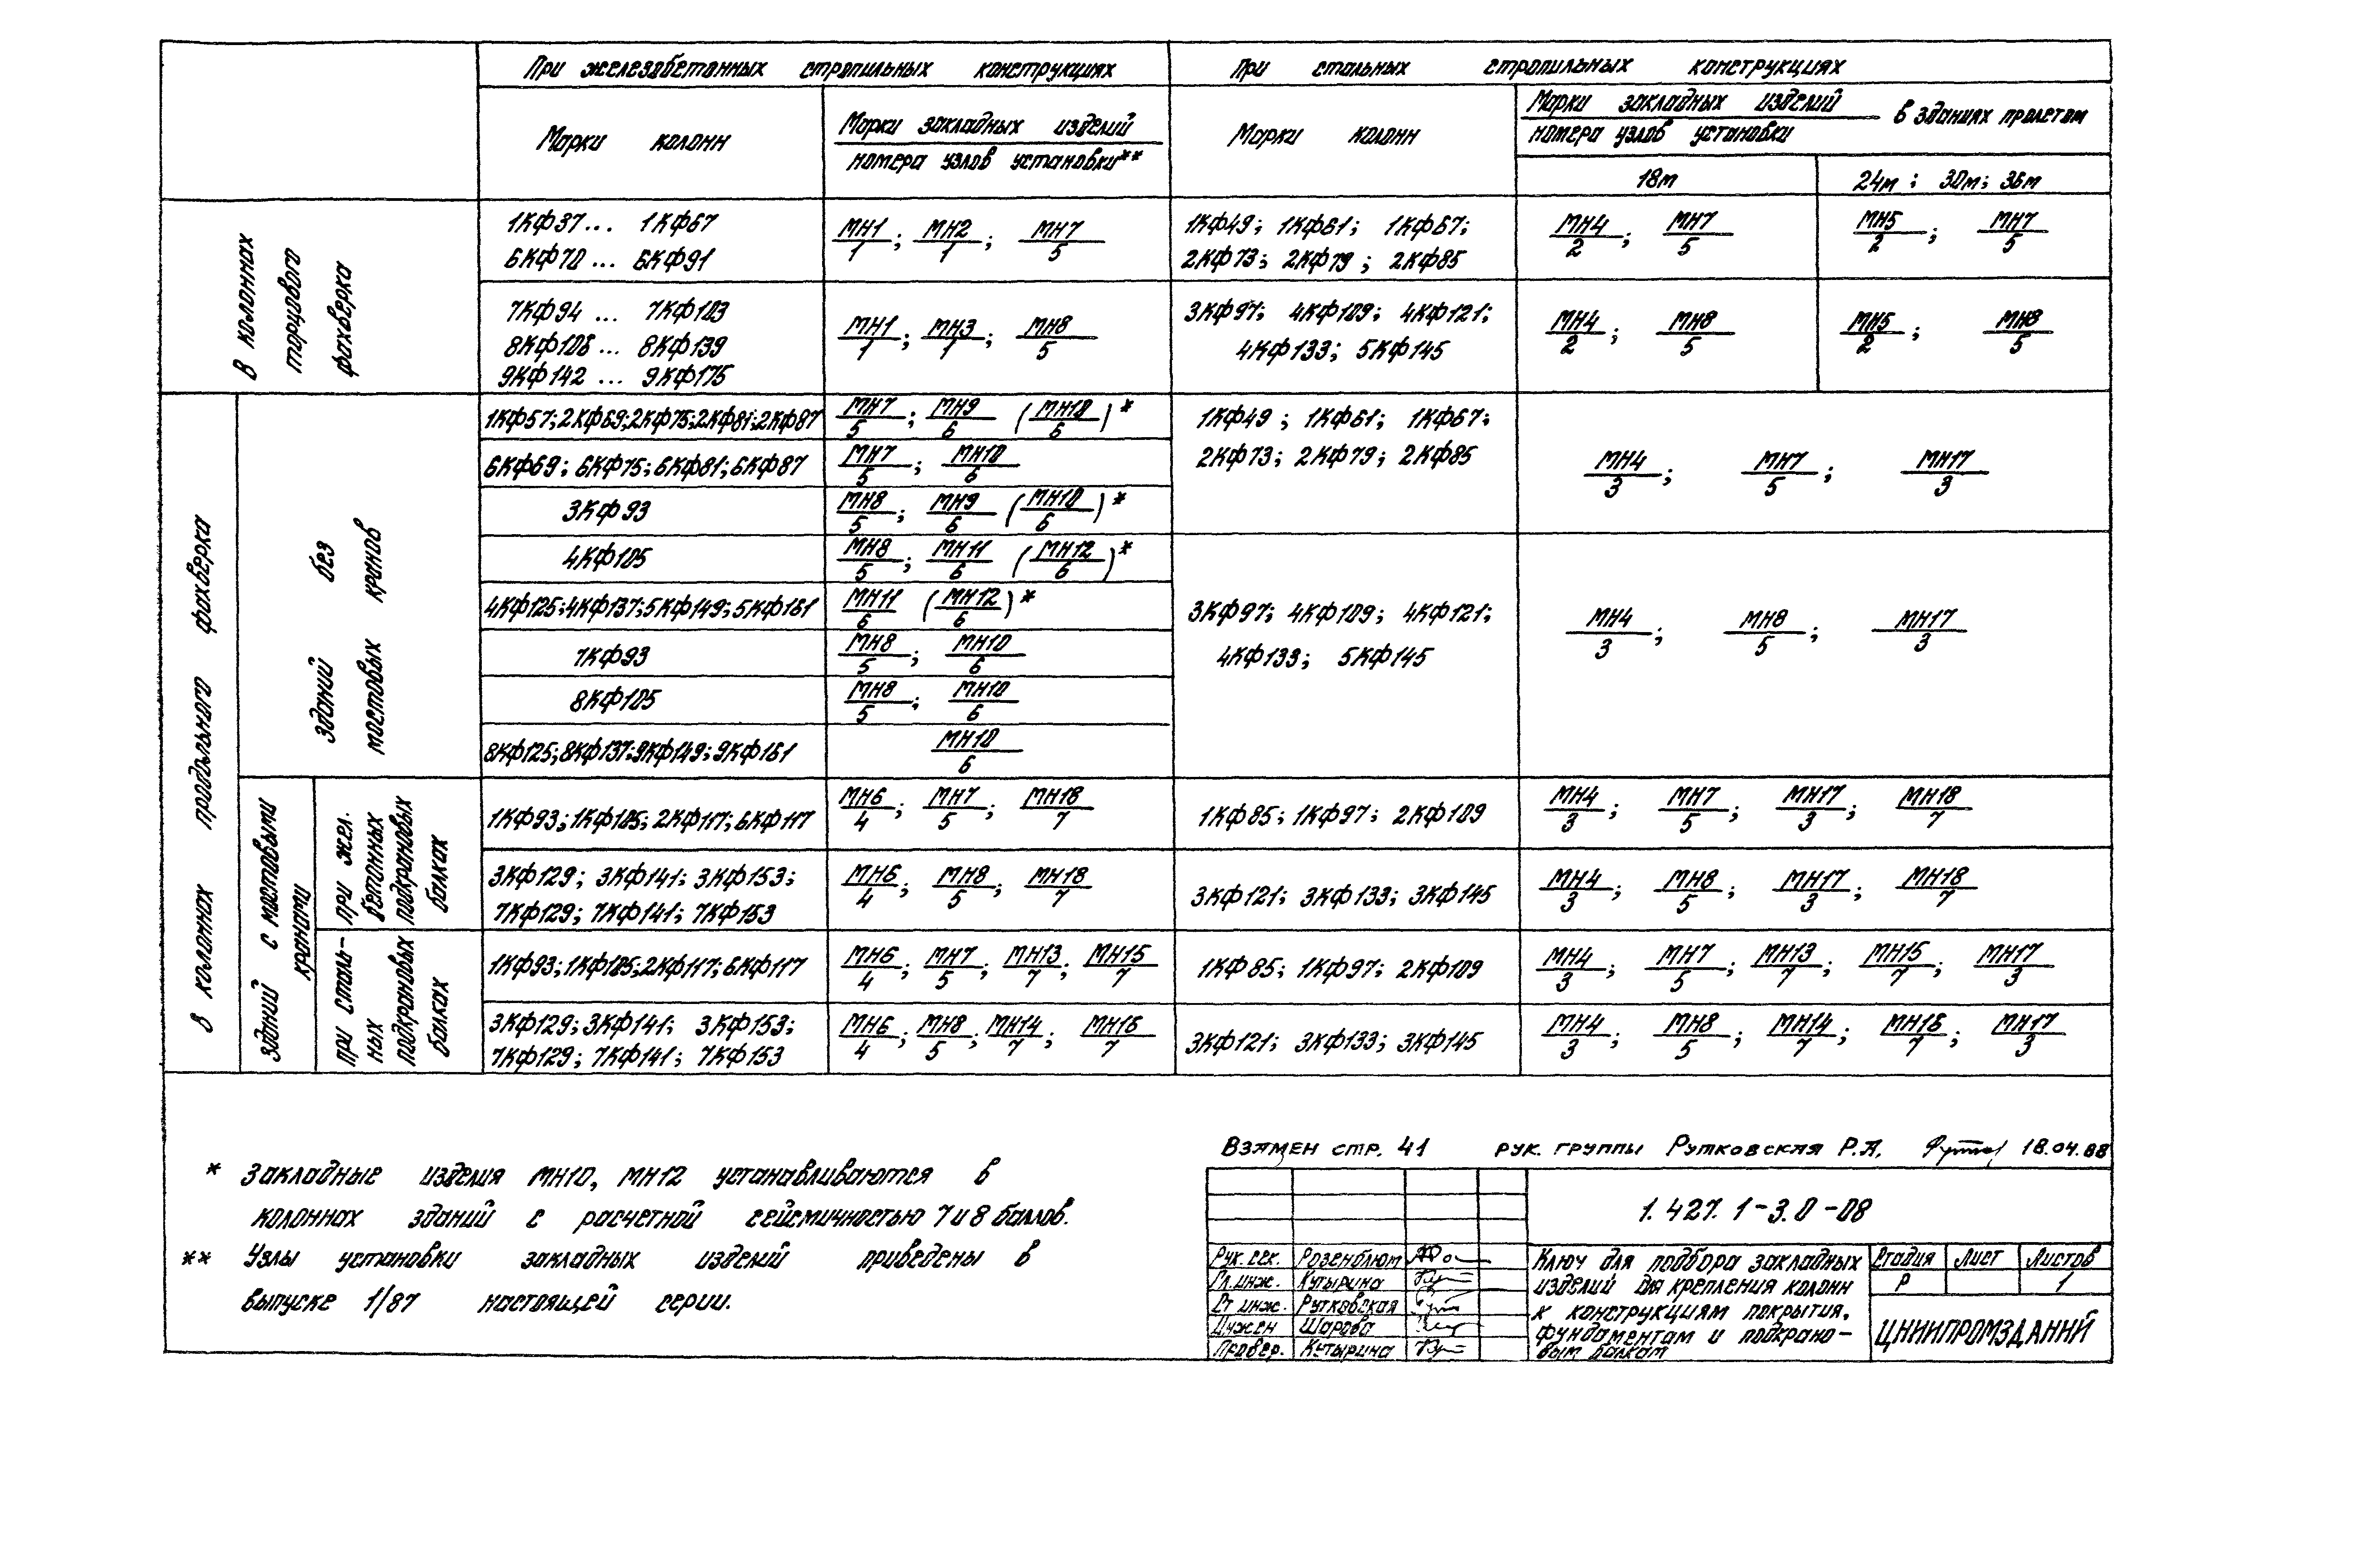 При железобетонных стропильных конструкциях
При стальных стропильных конструкциях
Марки колонн
Марки закладных изделий
номера узлов установки**
Марки колонн
Марки закладных изделий
номера узлов установки
в зданиях пролетом
18м
24м; 30м; 36м
В колоннах
торцового
фахверка
1КФ37... 1КФ67
6КФ70... 6КФ91
МН1/1; МН2/1; МН7/5
1КФ49; 1КФ61; 1КФ67;
2КФ73; 2КФ79; 2КФ85
МН4/2; МН7/5
МН5/2; МН7/5
7КФ94 ... 7КФ103
8КФ106... 8КФ139
9КФ142 ... 9КФ175
МН1/1; МН3/1; МН8/5
3КФ97; 4КФ109; 4КФ121;
4КФ133; 5КФ145
МН4/2; МН8/5
МН5/2; МН8/5
В колоннах продольного фахверка
зданий без
мостовых кранов
1КФ57;2КФ69;2КФ75;2КФ81;2КФ87
МН7/5; МН9/6 (МН10/6)*
6КФ69; 6КФ75; 6КФ81; 6КФ87
МН7/5; МН10/6
3КФ93
МН8/5; МН9/6 (МН10/6)*
4КФ105
МН8/5; МН11/6 (МН12/6)*
4КФ125;4КФ137;5КФ149;5КФ161
МН11/6 (МН12/6)*
7КФ93
МН8/5; МН10/6
8КФ105
МН8/5; МН10/6
8КФ125;8КФ137;9КФ149;9КФ161
МН10/6
1КФ49; 1КФ61; 1КФ67;
2КФ73; 2КФ79; 2КФ85
МН4/3; МН7/5; МН17/3
3КФ97; 4КФ109; 4КФ121;
4КФ133; 5КФ145
МН4/3; МН8/5; МН17/3
зданий с мостовыми
кранами
при жел.
бетонных
подкрановых
балках
1КФ93;1КФ105;2КФ117;6КФ117
МН6/4; МН7/5; МН18/7
1КФ85; 1КФ97; 2КФ109
МН4/3; МН7/5; МН17/3; МН18/7
3КФ129; 3КФ141; 3КФ153;
7КФ129; 7КФ141; 7КФ153
МН6/4; МН8/5; МН18/7
3КФ121; 3КФ133; 3КФ145
МН4/3; МН8/5; МН17/3; МН18/7
при сталь-
ных
подкрановых
балках
1КФ93;1КФ105;2КФ117;6КФ117
МН6/4; МН7/5; МН13/7; МН15/7
1КФ85; 1КФ97; 2КФ109
МН4/3; МН7/5; МН13/7; МН15/7; МН17/3
3КФ129;3КФ141; 3КФ153;
7КФ129; 7КФ141; 7КФ153
МН6/4; МН8/5; МН14/7; МН16/7
3КФ121; 3КФ133; 3КФ145
МН4/3; МН8/5; МН14/7; МН16/7; МН17/3
* Закладные изделия МН10, МН12 устанавливаются в
колоннах зданий с расчетной сейсмичностью 7 и 8 баллов.
** Узлы установки закладных изделий приведены в
выпуске 1/87 настоящей серии.
Взямен стр. 41 рук. группы Рутковская Р.А. 18.04.88
1.427.1-3.0-08
Рук. сек. Розенблюм
Гл. инж. Кутырина
Ст инж. Рутковская
Инжен Шарова
Провер. Кутырина
Ключ для подбора закладных
изделий для крепления колонн
к конструкциям покрытия,
фундаментам и подкрано-
вым балкам
Стадия Лист Листов
Р 1
ЦНИИПРОМЗДАНИЙ